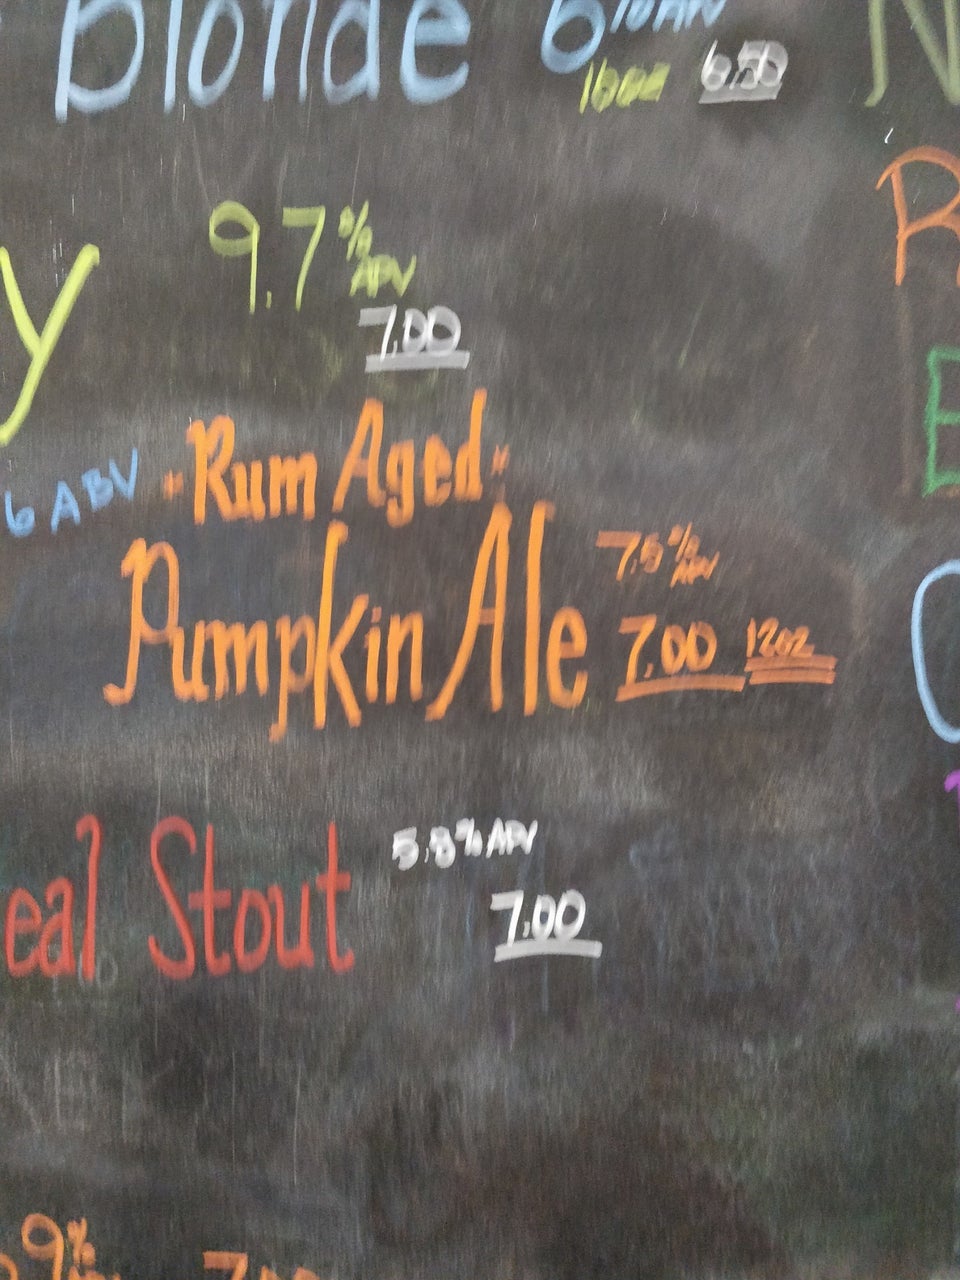 blonde 6% ABV
16oz 6.50
9.7% ABV
7.00
6 ABV
"Rum Aged"
Pumpkin Ale 7.5% ABV
7.00 12oz
eal Stout 5.8% ABV
7.00
9%
7.00